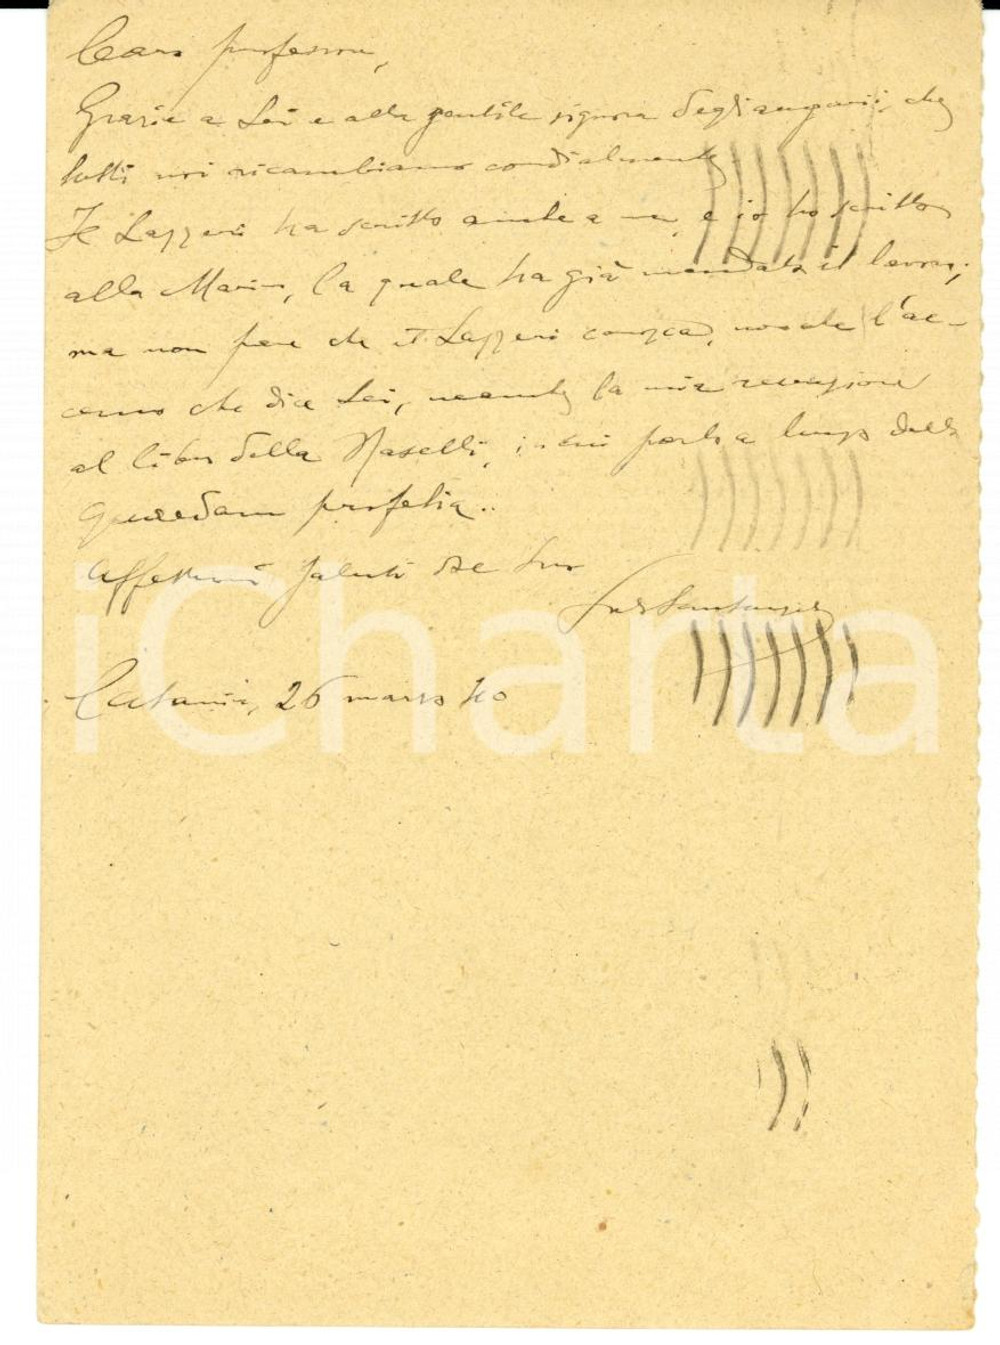 Caro professore,
Grazie a Lei e alla gentile signora degli auguri, che
tutti noi ricambiamo cordialmente
Il Lazzeri ha scritto anche a me, e io ho scritto
alla Marino, la quale ha già mandato il lavoro;
ma non pare che il Lazzeri conosca, nonche l'ac-
cenno che dice Lei, neanche la mia recensione
al libro della Naselli, in cui parlo a lungo della
Quaedam profetia..
Affettuosi saluti dal Suo
Santangelo
Catania, 26 marzo 40
iCharta